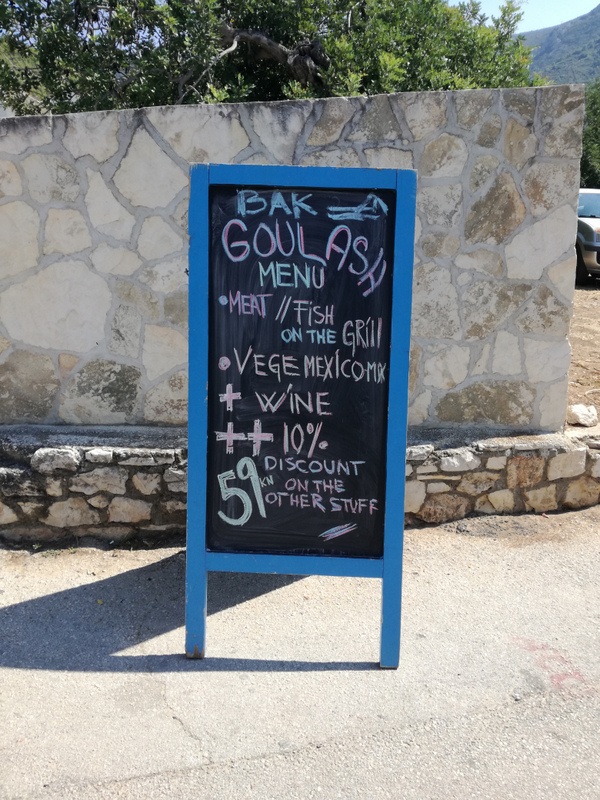 BAK
GOULASH
MENU
• MEAT // FISH
ON THE GRill
• VEGE MEXICO-MIX
+ WiNE
++ 10%
59 KN DISCOUNT
ON THE
OTHER STUFF